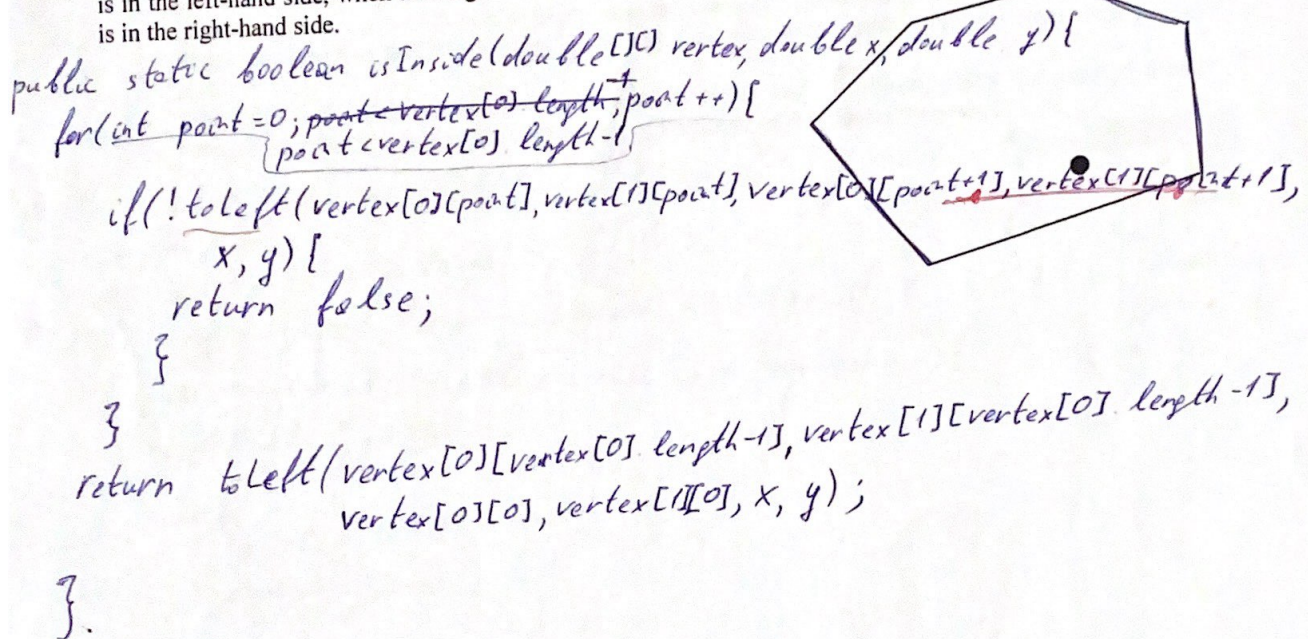 is in the left-hand side, when
is in the right-hand side.
public static boolean isInside(double[][] vertex, double x, double y){
for(int point=0; point<vertex[0].length-1; point++){
point<vertex[0].length-1
if(!toleft(vertex[0][point], vertex[1][point], vertex[0][point+1], vertex[1][point+1],
x, y){
return false;
}
}
return toLeft(vertex[0][vertex[0].length-1], vertex[1][vertex[0].length-1],
vertex[0][0], vertex[1][0], x, y);
}.